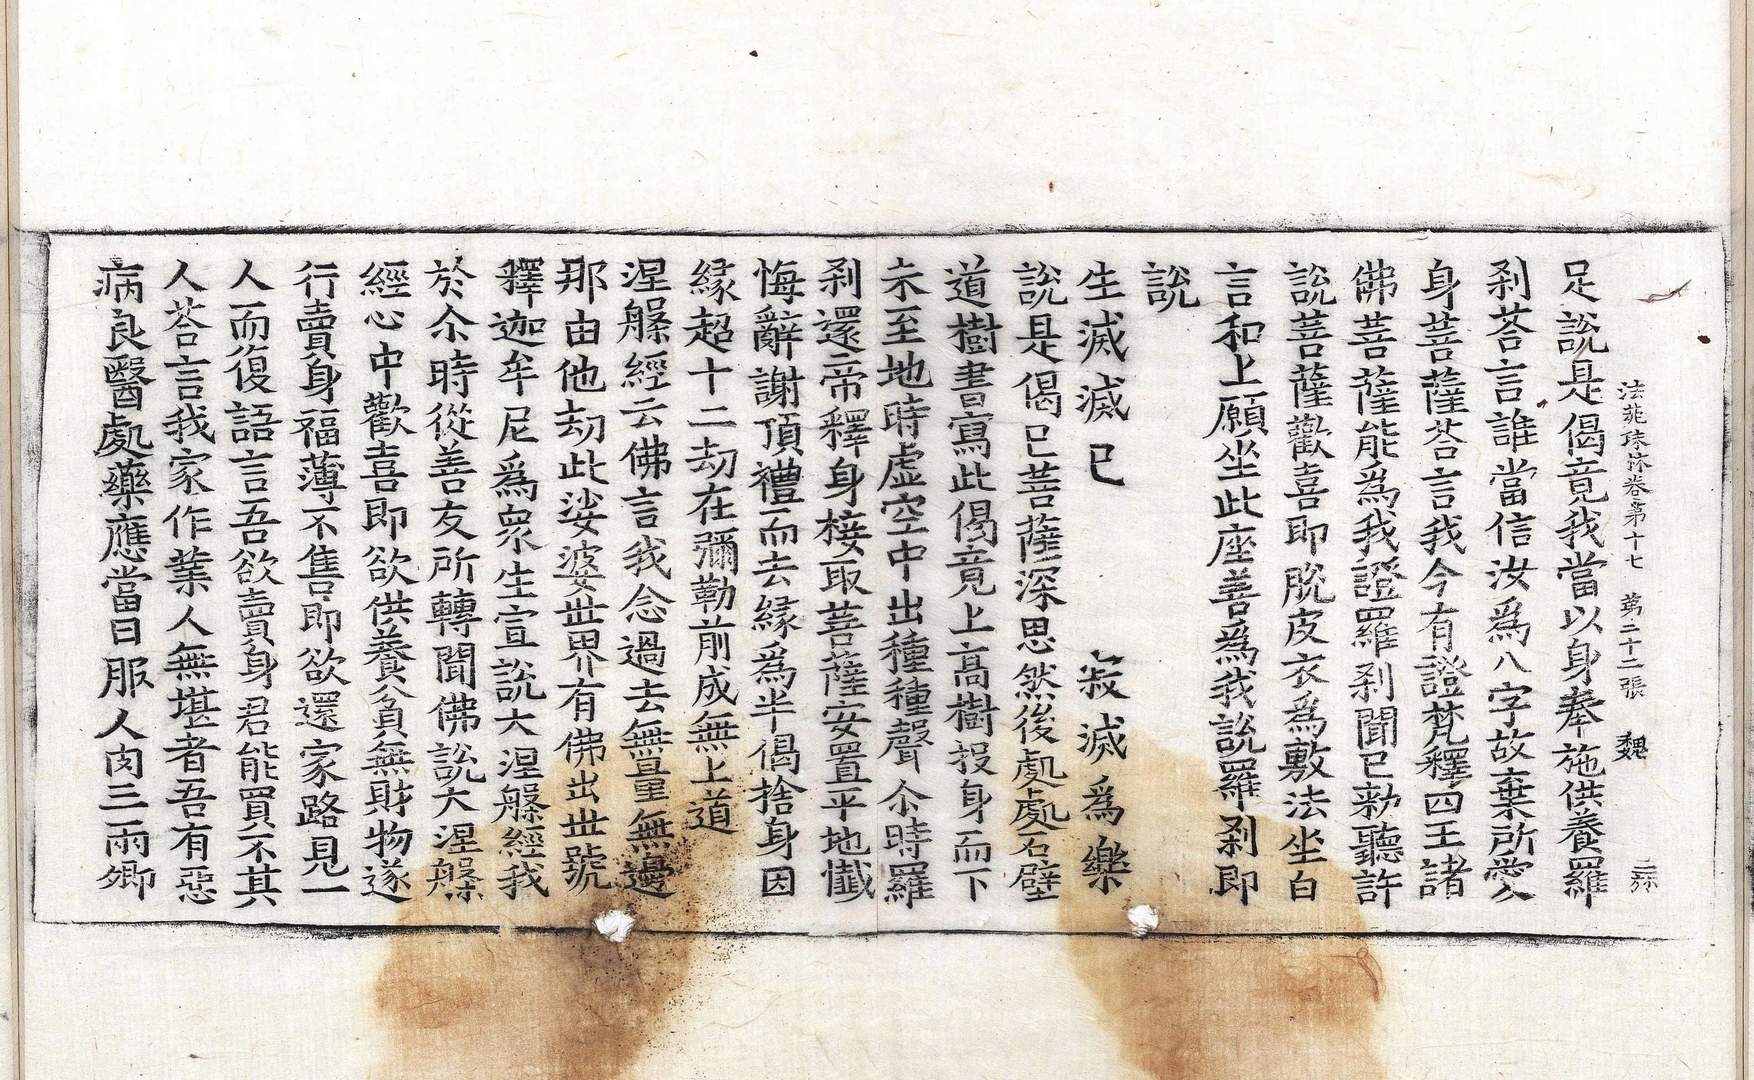 法苑珠林卷第十七　第二十二張　魏
足說是偈竟我當以身奉施供養羅
刹荅言誰當信汝爲八字故棄所愛
身菩薩荅言我今有證梵釋四王諸
佛菩薩能爲我證羅刹聞已勑聽許
說菩薩歡喜即脫皮衣爲敷法坐白
言和上願坐此座善爲我說羅刹即
說
生滅滅已　寂滅爲樂
說是偈已菩薩深思然後處處石壁
道樹書寫此偈竟上高樹投身而下
未至地時虛空中出種種聲尒時羅
刹還帝釋身接取菩薩安置平地懺
悔辭謝頂禮而去緣爲半偈捨身因
緣超十二劫在彌勒前成無上道
涅槃經云佛言我念過去無量無邊
那由他劫此娑婆世界有佛出世號
釋迦牟尼爲衆生宣說大涅槃經我
於尒時從善友所轉聞佛說大涅槃
經心中歡喜即欲供養貧無財物遂
行賣身福薄不售即欲還家路見一
人而復語言吾欲賣身君能買不其
人荅言我家作業人無堪者吾有惡
病良醫處藥應當日服人肉三兩卿